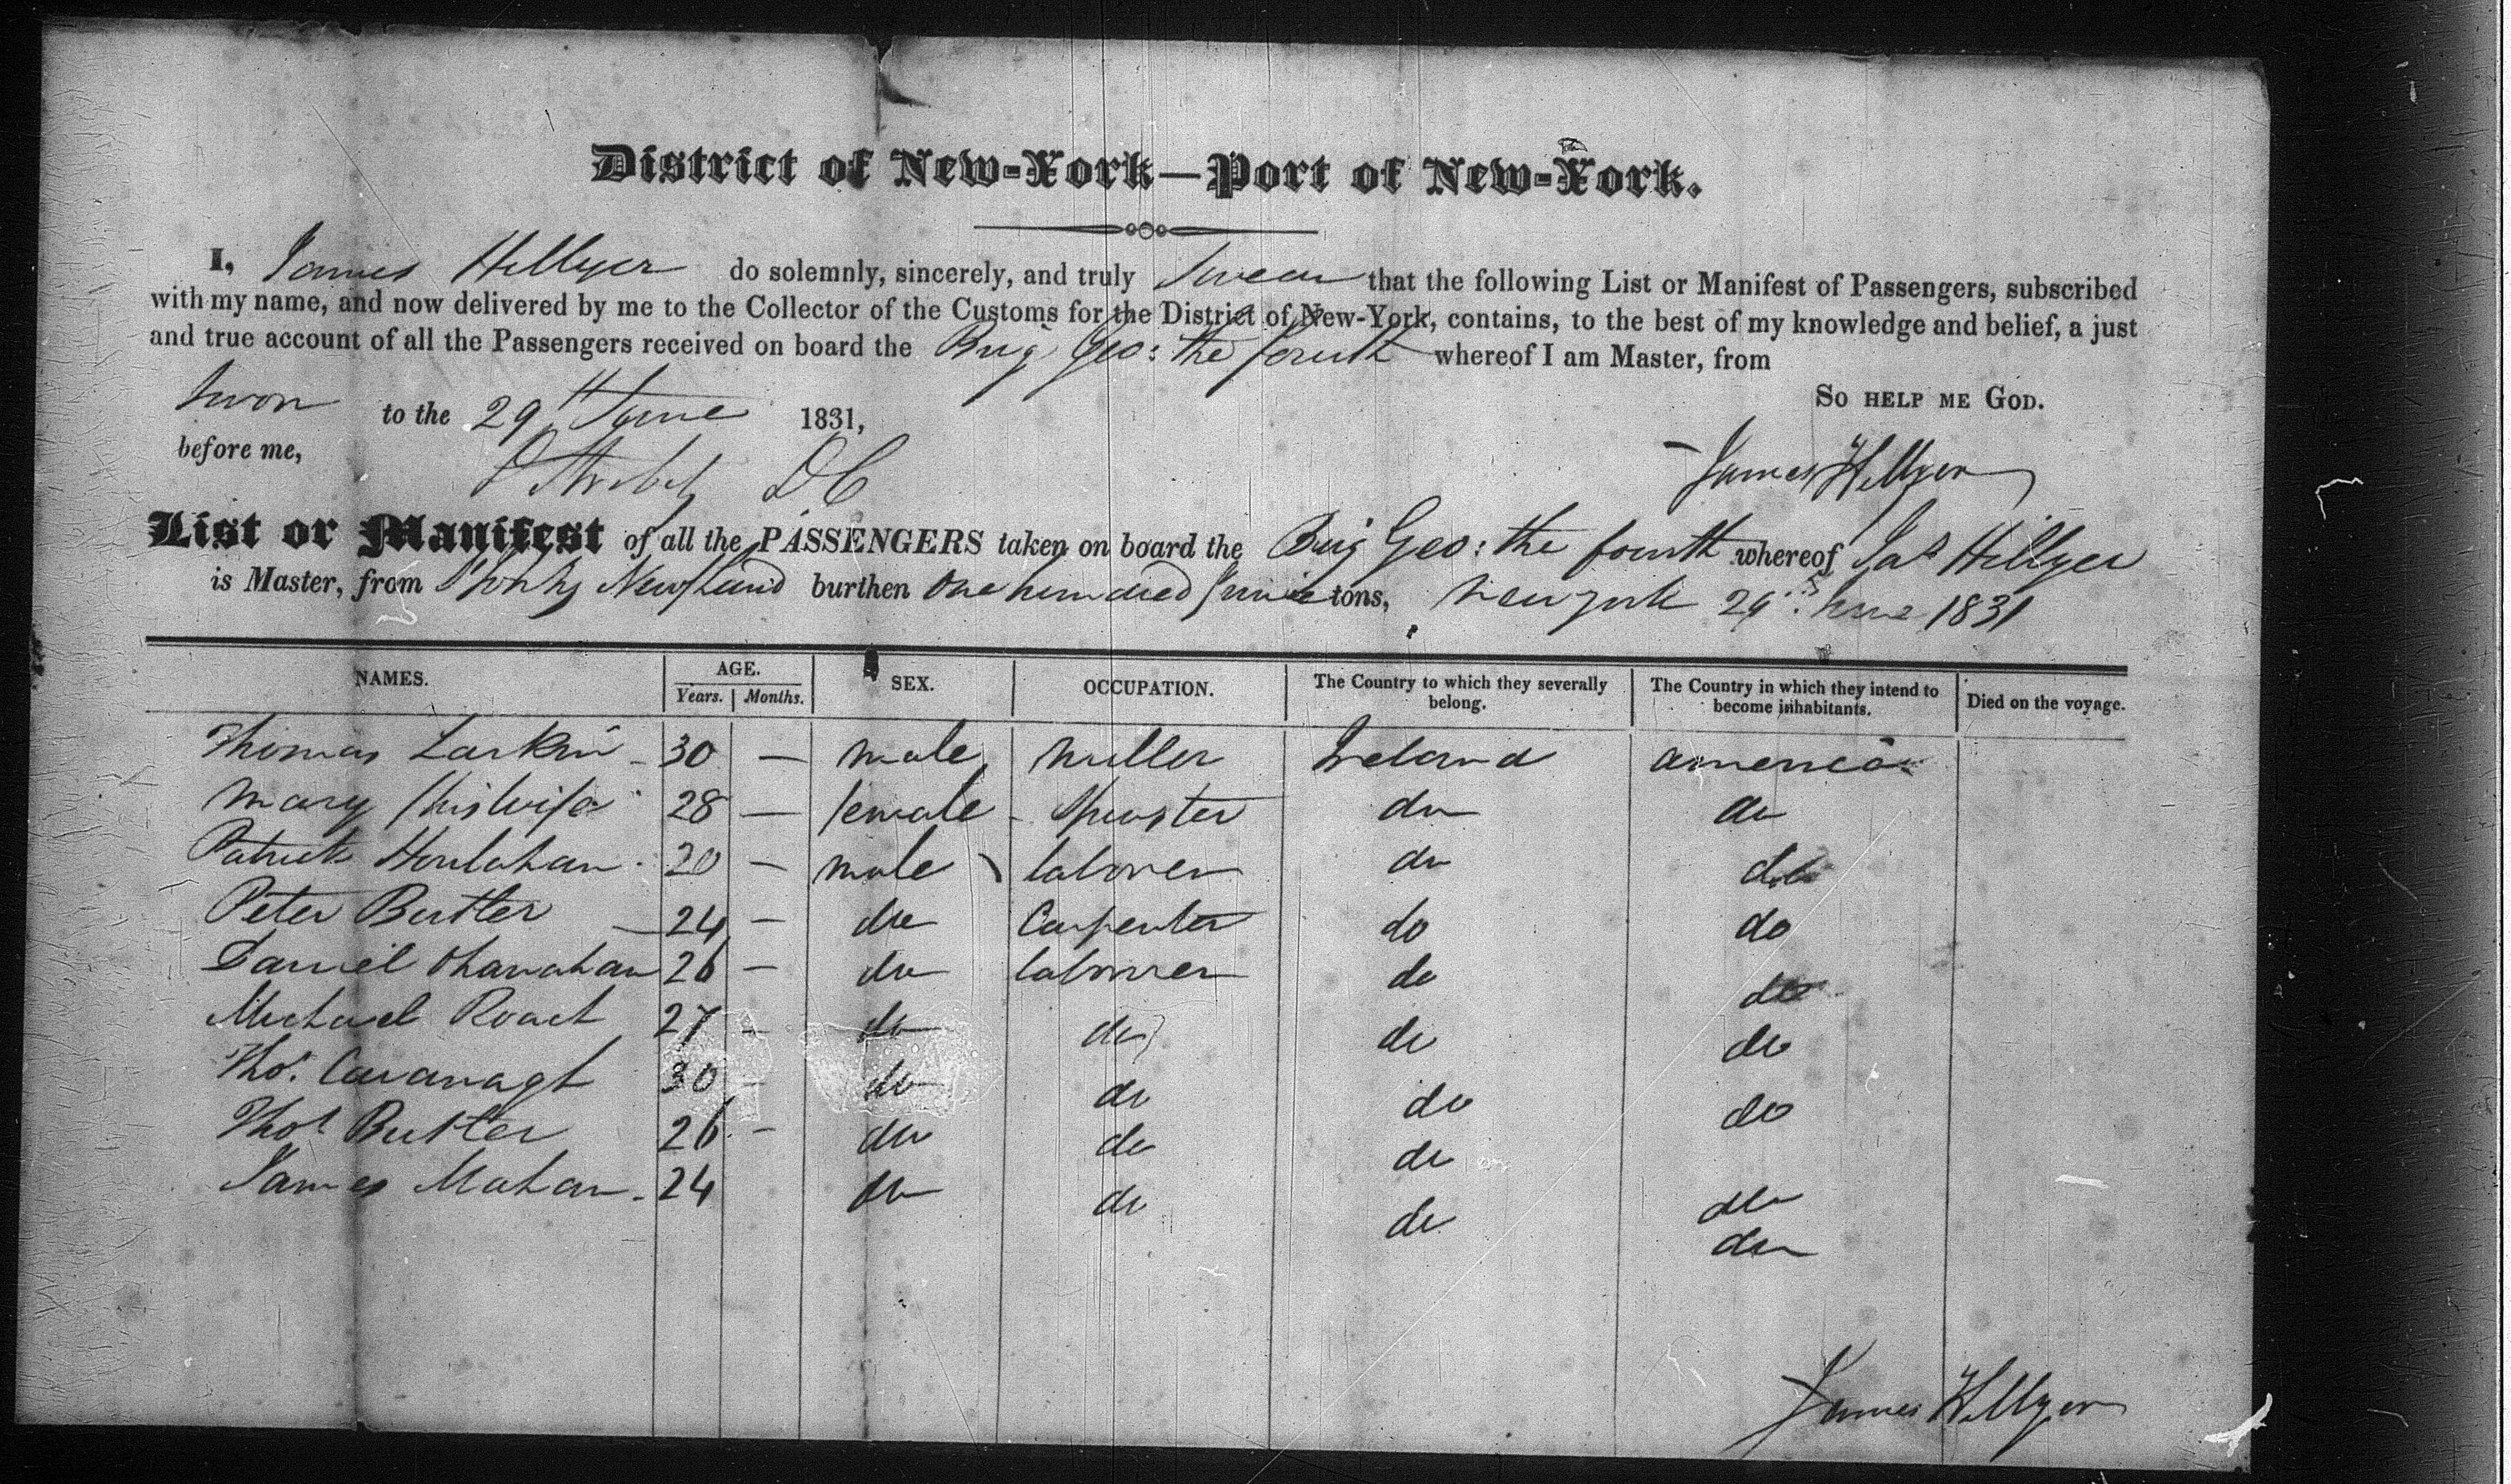 District of New-York—Port of New-York.
I, James Hillyer do solemnly, sincerely, and truly Swear that the following List or Manifest of Passengers, subscribed
with my name, and now delivered by me to the Collector of the Customs for the District of New-York, contains, to the best of my knowledge and belief, a just
and true account of all the Passengers received on board the Brig Geo: the fourth whereof I am Master, from
So help me God.
Sworn to the 29th June 1831,
before me,
D C
James Hillyer
List or Manifest of all the PASSENGERS taken on board the Brig Geo: the fourth whereof Jas Hillyer
is Master, from St Johns Newfland burthen One hundred tons, New york 29th June 1831
NAMES. AGE. SEX. OCCUPATION. The Country to which they severally belong. The Country in which they intend to become inhabitants. Died on the voyage.
Years. Months.
Thomas Larkin - 30 — male Miller Ireland america
Mary (his wife 28 — female - Spinster do do
Patrick Houlahan - 20 — male laborer do do
Peter Butler — 24 — do Carpenter do do
Daniel Shanahan 26 — do laborer do do
Michael Roach 27 - do do do do
Thos. Cavanagh 30 - do do do do
Thos Butler 26 - do do do do
James Mahan - 24 do do do do
James Hillyer